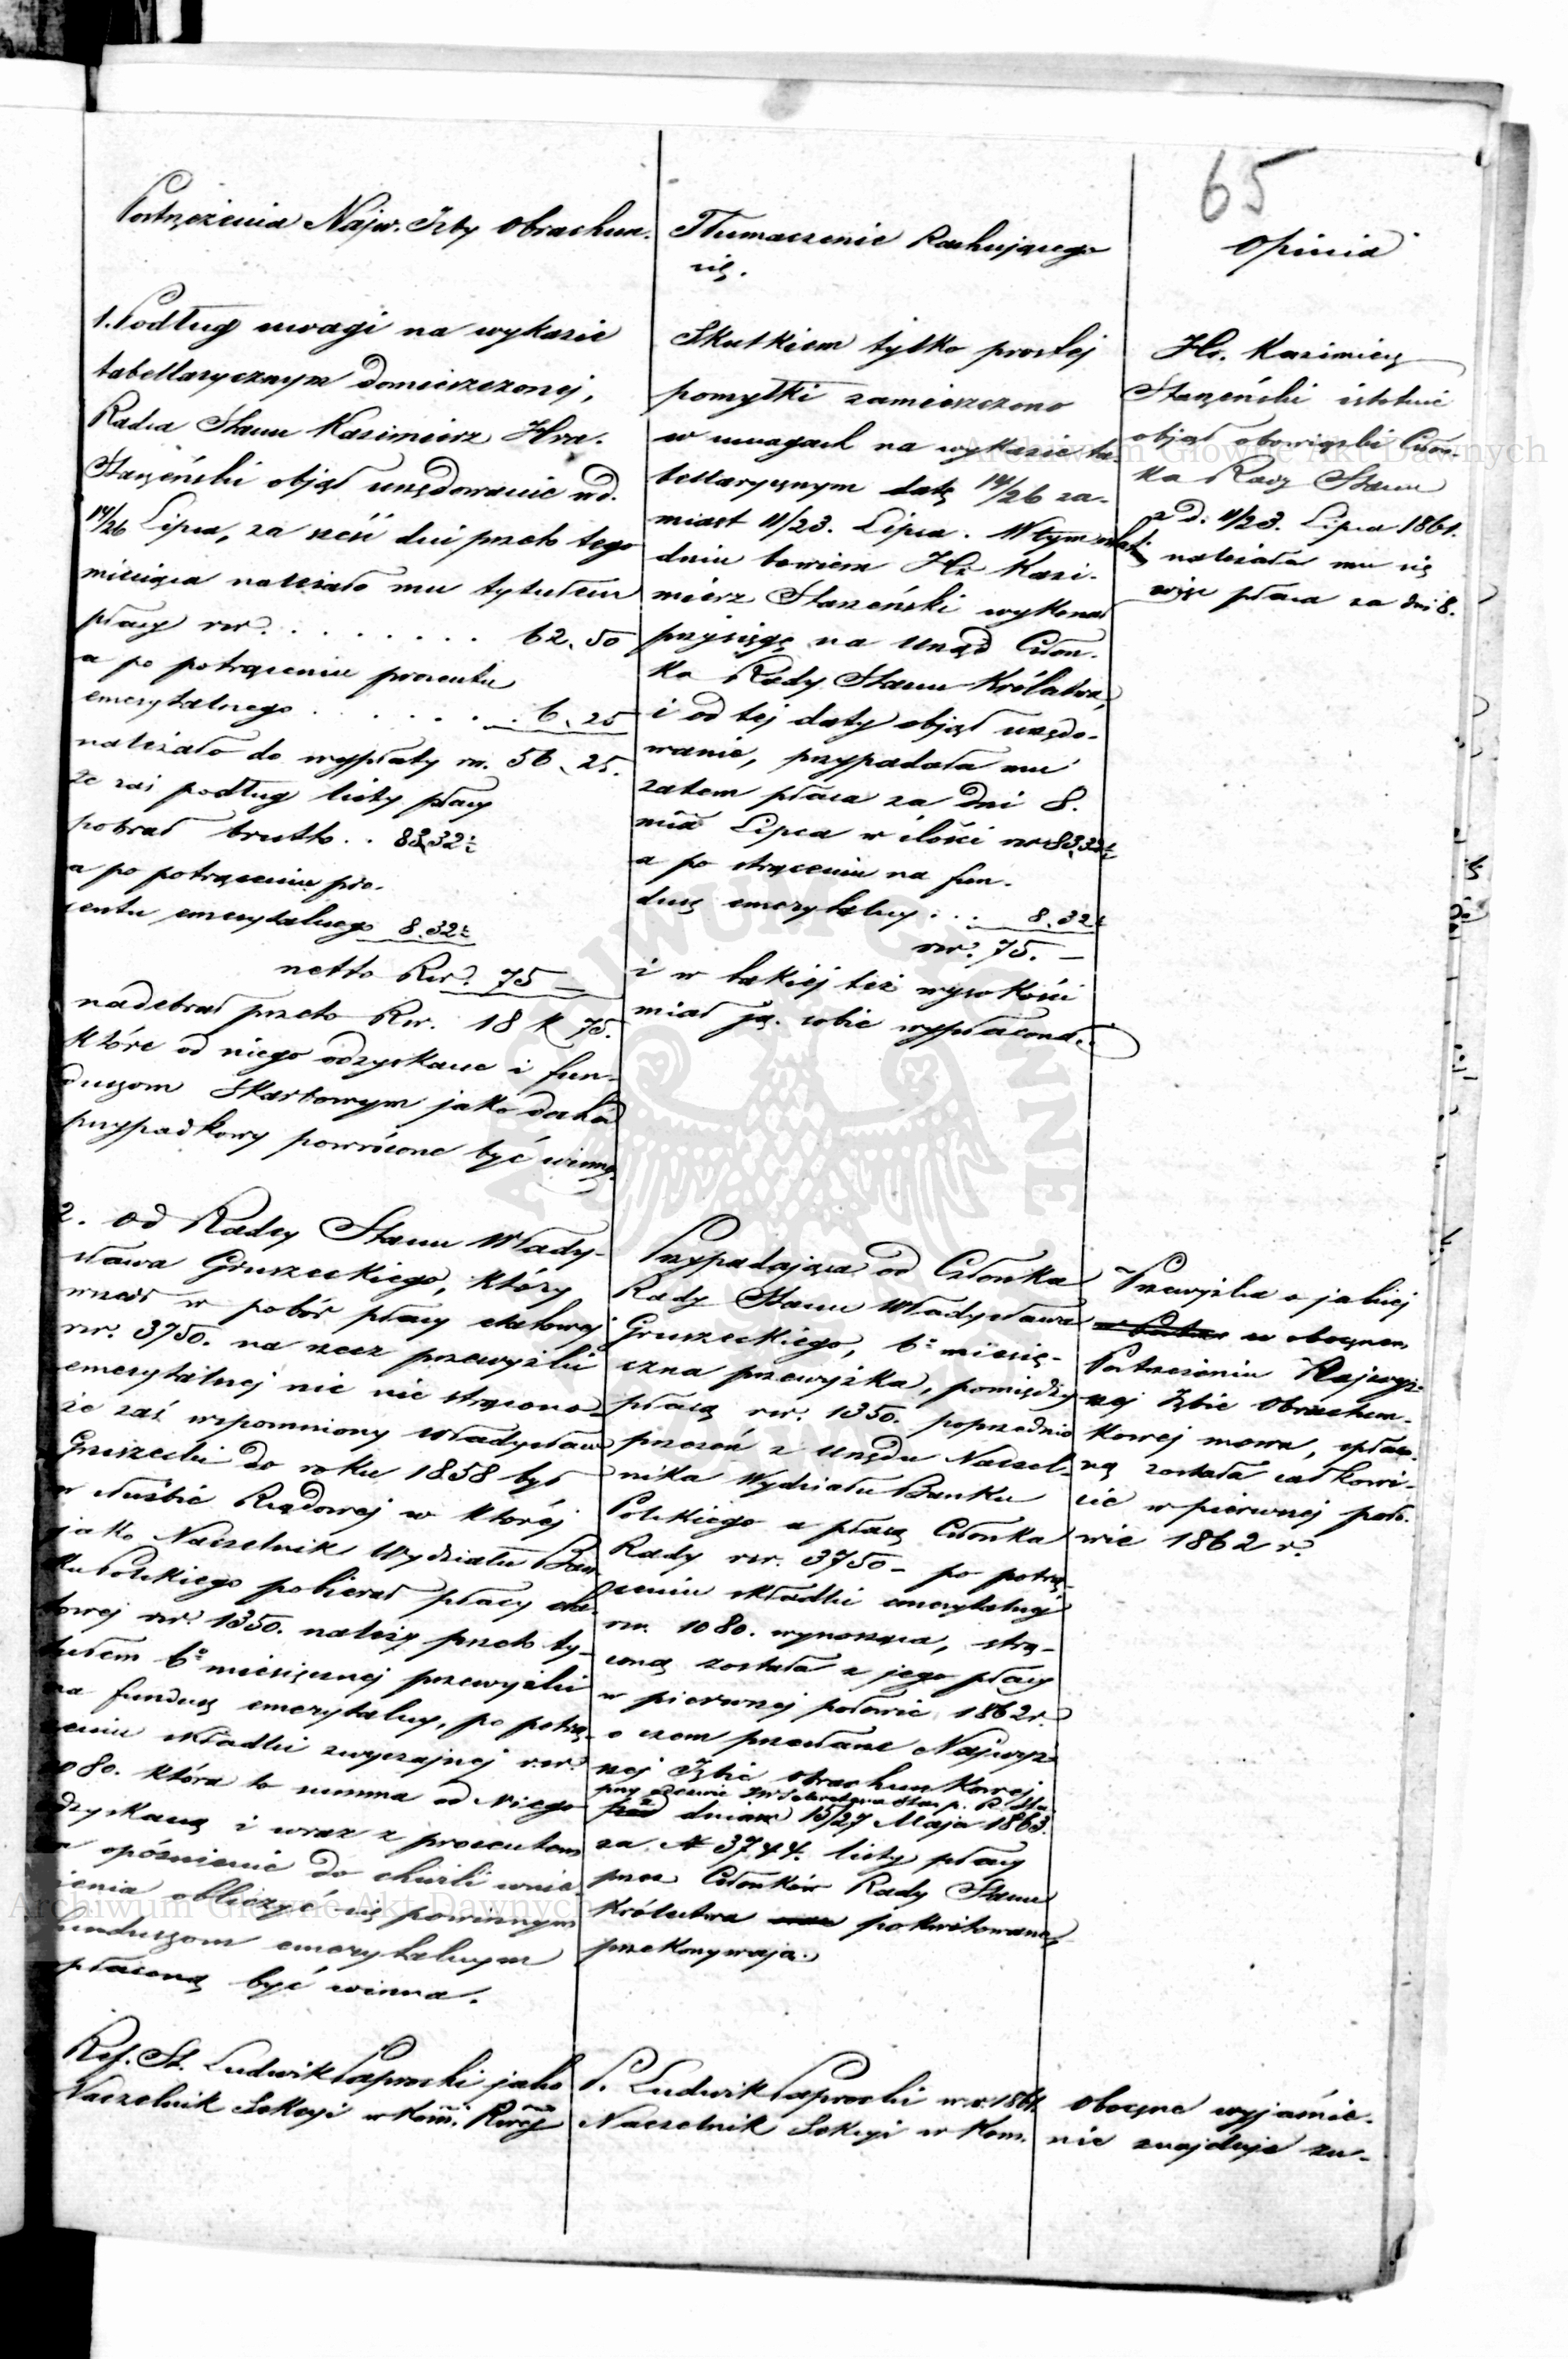 65
Postrzeżenia Najw. Izby Obrachun.
1. Podług uwagi na wykazie
tabellarycznym domieszczonej,
Radca Stanu Kazimierz Hra.
Starzeński objął urzędowanie od.
14/26 Lipca, za sześć dni przeto tego
miesiąca należało mu tytułem
płacy rsr. . . . . . . . . 62.50
a po potrąceniu procentu
emerytalnego . . . . . . 6.25
należało do wypłaty rs. 56.25.
że zaś podług listy płacy
pobrał brutto . . 83.32½
a po potrąceniu pro-
centu emerytalnego 8.32½
netto Rsr. 75 —
nadebrał przeto Rsr. 18 k 75.
które od niego odzyskane i fun-
duszom Skarbowym jako dochód
przypadkowy powrócone być winny.
2. Od Radcy Stanu Włady-
sława Gruszeckiego, który
wszedł w pobór płacy etatowej
rsr. 3750. na rzecz przewyżki
emerytalnej nic nie strącono
że zaś wspomniony Władysław
Gruszecki do roku 1858 był
w służbie Rządowej w której
jako Naczelnik Wydziału Ban
ku Polskiego pobierał płacy eta-
towej rsr. 1350. należy przeto ty-
tułem 6o miesięcznej przewyżki
na fundusz emerytalny, po potrą-
ceniu składki zwyczajnej rsr.
1080. która to summa od niego
odzyskaną i wraz z procentem
za opóźnienie do chwili wnie-
sienia obliczyć się powinnym
funduszom emerytalnym
płaconą być winna.
Ref. St. Ludwik Paprocki jako
Naczelnik Sekcyi w Kom. Rząd
Tłumaczenie Rachującego
się.
Skutkiem tylko prostej
pomyłki zamieszczono
w uwagach na wykazie ta-
bellarycznym datę 14/26 za-
miast 11/23. Lipca. W tym
dniu bowiem Hr. Kazi-
mierz Starzeński wykonał
przysięgę na urząd Człon-
ka Rady Stanu Królestwa,
i od tej daty objął urzędo-
wanie, przypadała mu
zatem płaca za dni 8.
mca Lipca w ilości rsr 83.32½
a po strąceniu na fun-
dusz emerytalny . . . 8.32½
rsr. 75. —
i w takiej też wysokości
miał ją sobie wypłaconą.
Przypadająca od Członka
Rady Stanu Władysława
Gruszeckiego, 6o miesię-
czna przewyżka, pomiędzy
płacą rsr. 1350. poprzednio
przezeń z urzędu Naczel-
nika Wydziału Banku
Polskiego a płacą Członka
Rady rsr. 3750 - po potrą-
ceniu składki emerytalnej
rsr. 1080. wynosząca, strą-
coną została z jego płacy
w pierwszej połowie 1862 r.
o czem przesłane Najwyż-
szej Izbie obrachunkowej
przy Sekretarza Stanu
dnia 15/27 Maja 1863.
za № 3744. listy płacy
przez Członków Rady Stanu
Królestwa pokwitowane,
przekonywają.
P. Ludwik Paprocki w r. 1861
Naczelnik Sekcyi w Kom.
Opinia
Hr. Kazimierz
Starzeński istotnie
objął obowiązki Człon-
ka Rady Stanu
z d. 11/23. Lipca 1861.
należała mu się
więc płaca za dni 8.
Przewyżka o jakiej
w obecnem
Postrzeżeniu Najwyż-
szej Izbie Obrachun-
kowej mowa, opłaco-
ną została całkowi-
cie w pierwszej poło-
wie 1862 r.
Obecne wyjaśnie-
nie znajduje zu-
Archiwum Główne Akt Dawnych
Archiwum Główne Akt Dawnych
ARCHIWUM GŁÓWNE AKT DAWNYCH